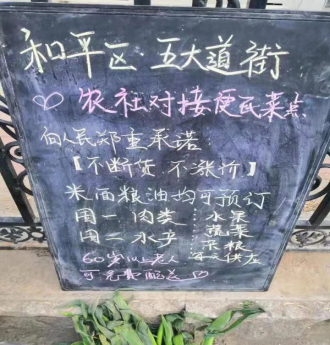 和平区·五大道街
♡农社对接爱民菜点
向人民郑重承诺:
【不断货 不涨价】
米面粮油均可预订
周一 肉类 水果
周二 水产 蔬菜
供应
60岁以上老人
可免费配送♡